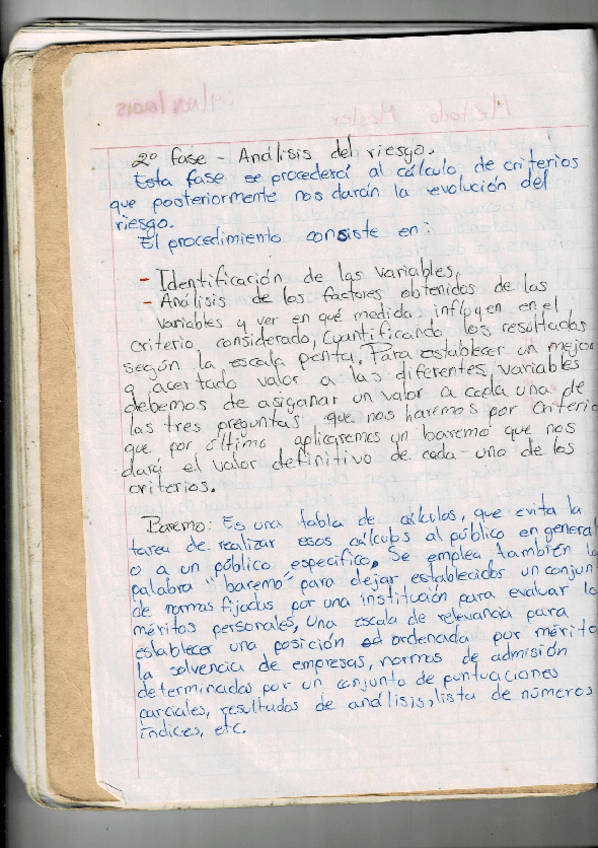 2º Fase - Análisis del riesgo.
Esta fase se procederá al cálculo de criterios
que posteriormente nos darán la evolución del
riesgo.
El procedimiento consiste en:
- Identificación de las variables,
- Análisis de los factores obtenidos de las
variables y ver en qué medida influyen en el
criterio considerado, cuantificando los resultados
según la escala penta. Para establecer un mejor
y acertado valor a las diferentes variables
debemos de asiganar un valor a cada una de
las tres preguntas que nos haremos por criterio
que por último aplicaremos un baremo que nos
dará el valor definitivo de cada uno de los
criterios.
Baremo: Es una tabla de cálculos, que evita la
tarea de realizar esos cálculos al público en general
o a un público específico. Se emplea también la
palabra "baremo" para dejar establecidos un conjun
de normas fijadas por una institución para evaluar lo
méritos personales, una escala de relevancia para
establecer una posición ordenada por mérito
la solvencia de empresas, normas de admisión
determinadas por un conjunto de puntuaciones
parciales, resultados de análisis, lista de números
índices, etc.